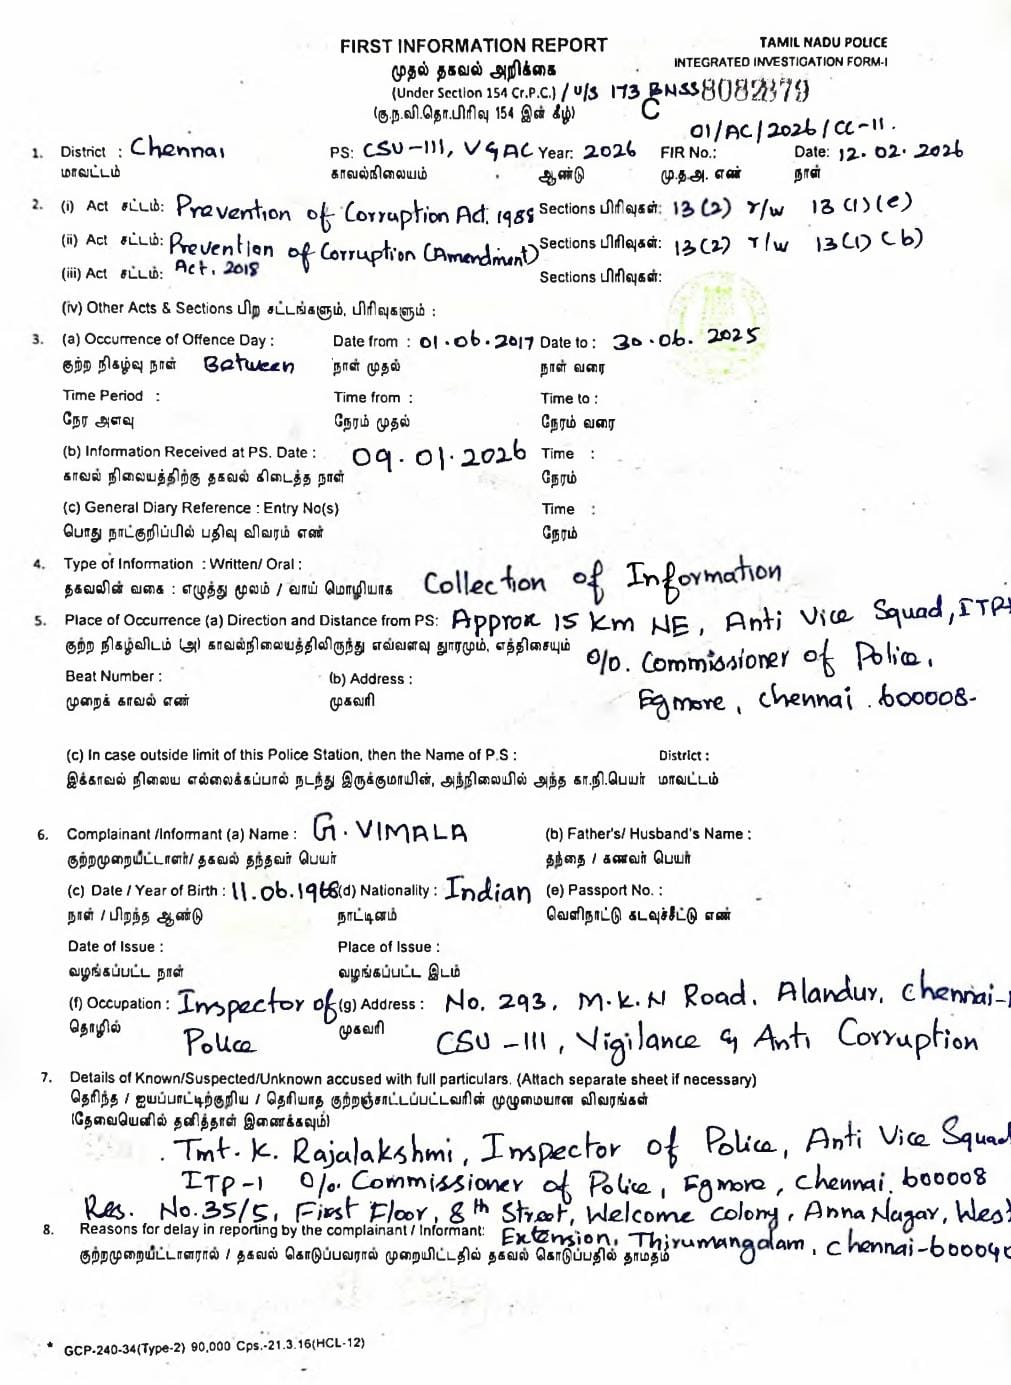 FIRST INFORMATION REPORT
TAMIL NADU POLICE
முதல் தகவல் அறிக்கை
INTEGRATED INVESTIGATION FORM-I
(Under Section 154 Cr.P.C.) / U/S 173 BNSS 8082879
(கு.ந.வி.தொ.பிரிவு 154 இன் கீழ்) C
01/AC/2026/CC-II.
1. District : Chennai PS: CSU-III, V&AC Year: 2026 FIR No.: Date: 12.02.2026
மாவட்டம் காவல்நிலையம் ஆண்டு மு.த.அ. எண் நாள்
2. (i) Act சட்டம்: Prevention of Corruption Act, 1988 Sections பிரிவுகள்: 13(2) r/w 13(1)(e)
(ii) Act சட்டம்: Prevention of Corruption (Amendment) Sections பிரிவுகள்: 13(2) r/w 13(1)(b)
(iii) Act சட்டம்: Act, 2018 Sections பிரிவுகள்:
(iv) Other Acts & Sections பிற சட்டங்களும், பிரிவுகளும் :
3. (a) Occurrence of Offence Day : Date from : 01.06.2017 Date to : 30.06.2025
குற்ற நிகழ்வு நாள் Between நாள் முதல் நாள் வரை
Time Period : Time from : Time to :
நேர அளவு நேரம் முதல் நேரம் வரை
(b) Information Received at PS. Date : 09.01.2026 Time :
காவல் நிலையத்திற்கு தகவல் கிடைத்த நாள் நேரம்
(c) General Diary Reference : Entry No(s) Time :
பொது நாட்குறிப்பில் பதிவு விவரம் எண் நேரம்
4. Type of Information : Written/ Oral :
தகவலின் வகை : எழுத்து மூலம் / வாய் மொழியாக Collection of Information
5. Place of Occurrence (a) Direction and Distance from PS: Approx 15 Km NE, Anti Vice Squad,
குற்ற நிகழ்விடம் (அ) காவல்நிலையத்திலிருந்து எவ்வளவு தூரமும், எத்திசையும் O/o. Commissioner of Police,
Beat Number : (b) Address :
முறைக் காவல் எண் முகவரி Egmore, Chennai. 600008-
(c) In case outside limit of this Police Station, then the Name of P.S : District :
இக்காவல் நிலைய எல்லைக்கப்பால் நடந்து இருக்குமாயின், அந்நிலையில் அந்த கா.நி.பெயர் மாவட்டம்
6. Complainant /Informant (a) Name : G. VIMALA (b) Father's/ Husband's Name :
குற்றமுறையீட்டாளர்/ தகவல் தந்தவர் பெயர் தந்தை / கணவர் பெயர்
(c) Date / Year of Birth : 11.06.1968 (d) Nationality : Indian (e) Passport No. :
நாள் / பிறந்த ஆண்டு நாட்டினம் வெளிநாட்டு கடவுச்சீட்டு எண்
Date of Issue : Place of Issue :
வழங்கப்பட்ட நாள் வழங்கப்பட்ட இடம்
(f) Occupation : Inspector of (g) Address : No. 293, M.K.N Road, Alandur, Chennai-
தொழில் Police முகவரி CSU-III, Vigilance & Anti Corruption
7. Details of Known/Suspected/Unknown accused with full particulars. (Attach separate sheet if necessary)
தெரிந்த / ஐயப்பாட்டிற்குறிய / தெரியாத குற்றஞ்சாட்டப்பட்டவரின் முழுமையான விவரங்கள்
(தேவையெனில் தனித்தாள் இணைக்கவும்)
Tmt. K. Rajalakshmi, Inspector of Police, Anti Vice Squad
ITP-1 O/o. Commissioner of Police, Egmore, Chennai. 600008
Res. No.35/5, First Floor, 8th Street, Welcome colony, Anna Nagar, West
8. Reasons for delay in reporting by the complainant / Informant: Extension, Thirumangalam, Chennai-60004
குற்றமுறையீட்டாளரால் / தகவல் கொடுப்பவரால் முறையிட்டதில் தகவல் கொடுப்பதில் தாமதம்
* GCP-240-34(Type-2) 90,000 Cps.-21.3.16(HCL-12)